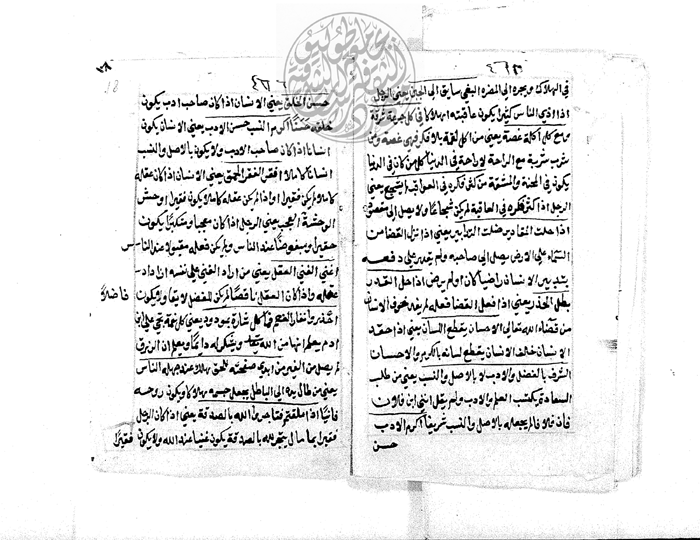 في الهلاك ويجره الى المضرة البغي سايق الى الحين يعني الرجل
اذا اذى الناس كثيرا يكون عاقبته الهلاكا في كل جرعة شرقة
ومع كل اكلة غصة يعني من اكل لقمة بلا فكر فهي غصة ومن
شرب شربة مع الراحة لا راحة في الدنيا كل من كان في الدنيا
يكون في المحنة والمشقة من كثر فكره في العواقب لم يشجع يعني
الرجل اذا كثر فكره في العاقبة لم يكن شجاعا ولا يصل الى مقصوده
اذا حلت المقادير ضلت التدابير يعني اذا نزل القضا من
السماء على الارض يصل الى صاحبه ولم يقدر على دفعه
بتدبير الانسان راضيا كان او لم يرض اذا حل القدر
بطل الحذر يعني اذا فعل القضا فعله لم يفد خوف الانسان
من قضاء الله تعالى الاحسان يقطع اللسان يعني اذا حقد
الانسان خالف الانسان يقطع لسانه بالكرم والاحسان
الشرف بالفضل والادب لا بالاصل والنسب يعني من طلب
السعادة يكتسب العلم والادب ولم يقل ابني ابن فلان
فان فلانا لم يجعله بالاصل والنسب شريفا اكرم الادب
حسن
حسن الخلق يعني الانسان اذا كان صاحب ادب يكون
خلقه حسنا اكرم النسب حسن الادب يعني الانسان يكون
انسانا اذا كان صاحب الادب ولا يكون بالاصل والنسب
انسانا كاملا افقر الفقر الحمق يعني الانسان اذا كان عقله
كاملا لم يكن فقيرا واذا لم يكن عقله كاملا يكون فقيرا اوحش
الوحشة العجب يعني الرجل اذا كان معجبا ومتكبرا يكون
حقيرا ومبغوضا عند الناس ولم يكن فعله مقبولا عند الناس
اغنى الغنى العقل يعني من اراد الغنى على نفسه ازداد
عقله واذا كان العقل ناقصا لم يكن للفضل لايقا ولا يكون فاضلا
احذروا نفار النعم فما كل شارد بمردود يعني كل نعمة تجي على ابن
ادم يعلم انها من الله ويشكر له دائما ويعلم ان الرزق
لم يصل من الغير من ابدى صفحته للحق هلك عند جهلة الناس
يعني من طال يده الى الباطل يجعل جسمه هلاكا ويكون روحه
فانيا اذا املقتم فتاجروا الله بالصدقة يعني اذا كان الرجل
فقيرا بما مال يتجر لله بالصدقة يكون غنيا عند الله ولا يكون فقيرا